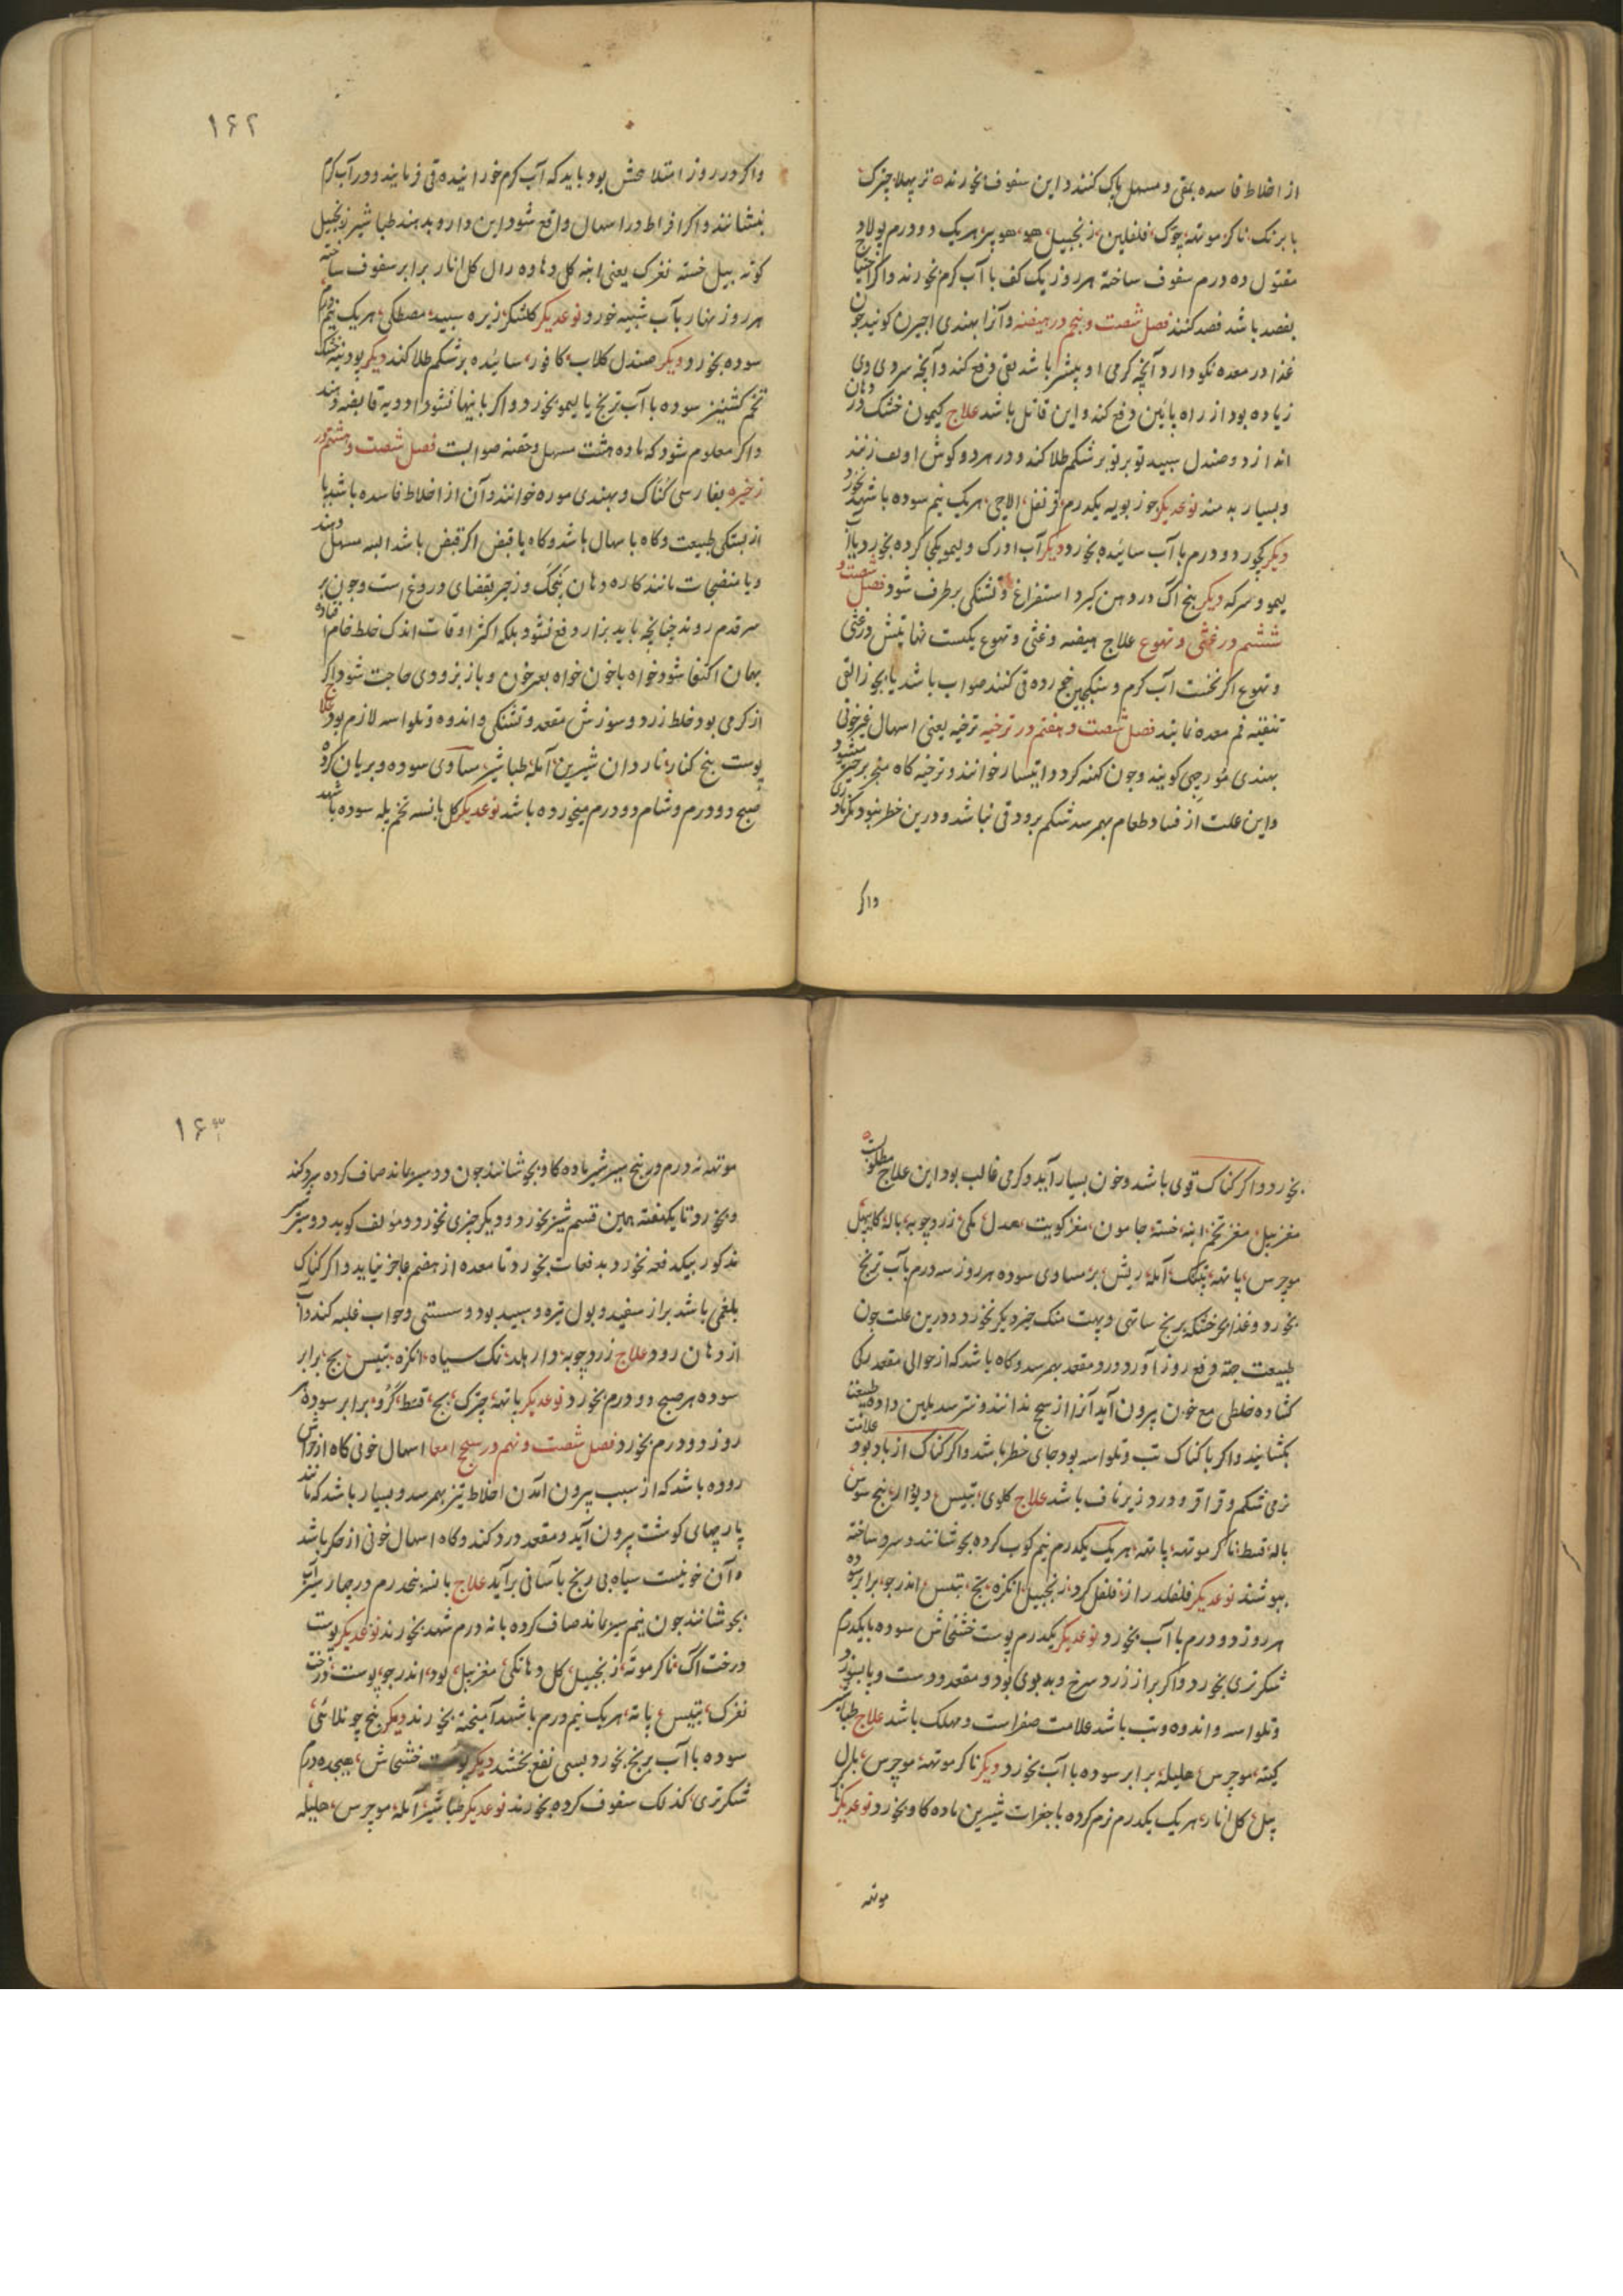 از اخلاط فاسده بمقی و مسهل پاک کنند و این سفوف بخورند تر پهلا چترک
بابرنک ناکر موتهه چوک فلفلین زنجبیل هو هو پیز هریک دو درم پولاد
مقتول ده درم سفوف ساخته هرروز یک کف با آب کرم بخورند و اکر احتیاج
بفصد باشد فصد کنند فصل شصت و پنجم در هیضه و آنرا بهندی اجیرن کویند چون
غذا در معده نکو دارد آنچه کرمی او بیشتر باشد بقی دفع کند و آنچه سردی وی
زیاده بود از راه پائین دفع کند و این قاتل باشد علاج کیمون خشک در دهان
اندازد و صندل سپید تو بر تو بر شکم طلا کند و در هر دو کوش او پف زنند
و بسیار بدمند نوعدیکر جوز بویه یکدرم قرنفل الاچی هریک نیم سوده با شهد بخورد
دیکر کچور دو درم با آب سائیده بخورد دیکر آب ادرک و لیمو یکجا کرده بخورد یا آب
لیمو و سرکه دیکر بیخ آک در دهن کیرد استفراغ و تشنکی برطرف شود فصل شصت و
ششم در غثی و تهوع علاج هیضه و غثی و تهوع یکست نهایتش در غثی
و تهوع اکر نخست آب کرم و سکنجبین خورده قی کنند صواب باشد یا بجوز القی
تنقیه فم معده نمایند فصل شصت و هفتم در ترخیه ترخیه یعنی اسهال غیرخونی
بهندی مورچی کویند و چون کهنه کردد اتیسار خوانند و ترخیه کاه منجر بزحیر میشود
و این علت از فساد طعام بهم رسد شکم برود قی نباشد و درین خطر نبود مکر
واکر
۱۶۲
واکر در روز امتلا عشر بود باید که آب کرم خورانیده قی فرمایند و در آب کرم
بنشانند و اکر افراط در اسهال واقع شود این دارو بدهند طباشیر زنجبیل
کوته بیل خسته نغزک یعنی انبه کل دهاوه رال کل انار برابر سفوف ساخته
هرروز نهار بآب شبینه خورد نوعدیکر کلشکر زیره سپید مصطکی هریک نیم درم
سوده بخورد دیکر صندل کلاب کافور سائیده بر شکم طلا کند دیکر پودینه خشک
تخم کشنیز سوده با آب ترنج یا لیمو بخورد و اکر باینها نشود ادویه قابضه دهند
و اکر معلوم شود که ماده هست مسهل و حقنه صوابست فصل شصت و هشتم در
زحیر بفارسی کناک و بهندی موره خوانند و آن از اخلاط فاسده باشد یا
از بستکی طبیعت و کاه باسهال باشد و کاه با قبض اکر قبض باشد البته مسهل دهند
و یا منضجات مانند کاره دهان پنچک و زحیر بقضای دروغ است و چون بر
سر قدم روند چنانچه باید براز دفع نشود بلکه اکثر اوقات اندک خلط خام افتاده
بهمان اکتفا شود خواه باخون خواه بغیر خون و باز بزودی حاجت شود اکر
از کرمی بود خلط زرد و سوزش مقعد و تشنکی و اندوه و تلواسه لازم بود علاج
پوست بیخ کنار ناردان شیرین آمله طباشیر مساوی سوده و بریان کرده
صبح دو درم و شام دو درم میخورده باشد نوعدیکر کل بانسه تخم بیله سوده با شهد
بخورد و اکر کناک قوی باشد و خون بسیار آید و کرمی غالب بود این علاج مطلوبست
مغز بیل مغز تخم انبه خسته جامون مغز کویت صندل مکی زردچوبه باله کایپهل
موچرس پاتهه پتنک آمله ریش بر مساوی سوده هرروز سه درم بآب ترنج
بخورد و غذا بجز خشکه برنج ساتهی و بهت منک چیز دیکر نخورد و درین علت چون
طبیعت جهة دفع روز آورد درد مقعد بهم رسد و کاه باشد که از حوالی مقعد رکی
کشاده خلطی مع خون بیرون آید آنرا از سحج ندانند و نترسد بلین داده طبیعت
بکشایند و اکر با کناک تب و تلواسه بود جای خطر باشد و اکر کناک از باد بود علامت
نرمی شکم و قراقر و درد زیر ناف باشد علاج کلوی اتیس دیودار بیخ سوس
باله قسط ناکر موتهه پاتهه هریک یکدرم نیم کوب کرده بجوشانند و سرد ساخته
بنوشند نوعدیکر فلفلدراز فلفل کرد زنجبیل انکزه بچ اتیس اندرجو برابر سوده
هرروز دو درم با آب بخورد نوعدیکر یکدرم پوست خشخاش سوده با یکدرم
شکر تری بخورد و اکر براز زرد و سرخ و بدبوی بود و مقعد و دست و پا بسوزد
و تلواسه و اندوه و تب باشد علامت صفراست و مهلک باشد علاج طباشیر
کیته موچرس هلیله برابر سوده با آب بخورد دیکر ناکر موتهه موچرس بال
بیل کل انار هریک یکدرم نرم کرده با جغرات شیرین ماده کاو بخورد نوعدیکر ناکر
موتهه
۱۶۳
موتهه نه درم در پنج سیر شیر ماده کاو بجوشانند چون دو سیر بماند صاف کرده سرد کند
و بخورد تا یکهفته همین قسم شیر بخورد و دیکر چیزی نخورد و مؤلف کوید دو سیر شیر
مذکور بیکدفعه نخورد بدفعات بخورد تا معده از هضم عاجز نیاید و اکر کناک
بلغمی باشد براز سفید و بول تیره و سپید بود و سستی و خواب غلبه کند و آب
از دهان رود علاج زردچوبه دارهلد نمک سیاه انکزه اتیس بچ برابر
سوده هر صبح دو درم بخورد نوعدیکر پاتهه چترک بچ قسط کرو برابر سوده هر
روز دو درم بخورد فصل شصت و نهم در سحج امعا اسهال خونی کاه از خراش
روده باشد که از سبب بیرون آمدن اخلاط تیز بهم رسد و بسیار باشد که مانند
پارچهای کوشت بیرون آید و مقعد درد کند و کاه اسهال خونی از جکر باشد
و آن خونیست سیاه بی رنج بآسانی برآید علاج بانسه پنجدرم در چهار سیر آب
بجوشانند چون نیم سیر بماند صاف کرده با نه درم شهد بخورند نوعدیکر پوست
درخت آک ناکر موته زنجبیل کل دهانکی مغز بیل لود اندرجو پوست درخت
نغزک اتیس پاته هریک نیم درم با شهد آمیخته بخورند دیکر بیخ چونلائی
سوده با آب برنج بخورد بسی نفع بخشد دیکر پوست خشخاش هیجده درم
شکر تری کذلک سفوف کرده بخورند نوعدیکر طباشیر آمله موچرس هلیله